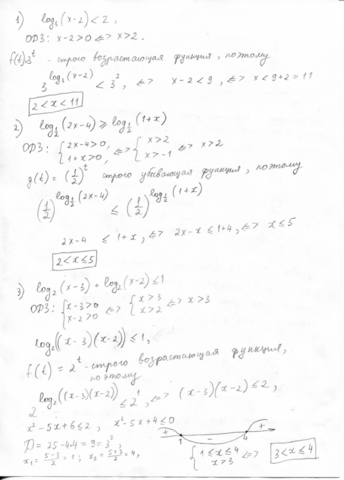 1) log₃(x-2) < 2,
ОДЗ: x-2>0 <=> x>2.
f(t)=3^t - строго возрастающая функция, поэтому
3^(log₃(x-2)) < 3², <=> x-2<9, <=> x<9+2=11
2<x<11
2) log_½(2x-4) ≥ log_½(1+x)
ОДЗ: {2x-4>0, 1+x>0, <=> {x>2 x>-1 <=> x>2
g(t) = (1/2)^t строго убывающая функция, поэтому
(1/2)^(log_½(2x-4)) ≤ (1/2)^(log_½(1+x))
2x-4 ≤ 1+x, <=> 2x-x≤1+4, <=> x≤5
2<x≤5
3) log₂(x-3) + log₂(x-2) ≤ 1
ОДЗ: {x-3>0 x-2>0 <=> {x>3 x>2 <=> x>3
log₂((x-3)(x-2)) ≤ 1,
f(t) = 2^t - строго возрастающая функция,
поэтому
2^(log₂((x-3)(x-2))) ≤ 2¹, <=> (x-3)(x-2) ≤ 2,
x²-5x+6≤2, x²-5x+4≤0
+ 1 - 4 +
D=25-4·4=9=3²
x₁=(5-3)/2=1; x₂=(5+3)/2=4,
{1≤x≤4 x>3 <=> 3<x≤4